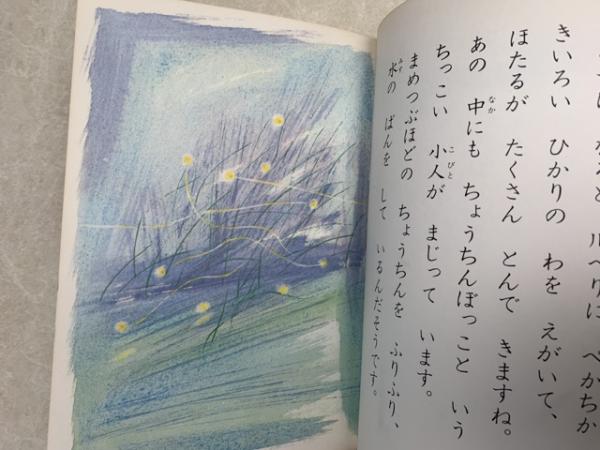 なると 川べりに ぺかちか
きいろい ひかりの わを えがいて、
ほたるが たくさん とんで きますね。
あの 中にも ちょうちんぼっこと いう
ちっこい 小人が まじって います。
まめつぶほどの ちょうちんを ふりふり、
水の ばんを して いるんだそうです。